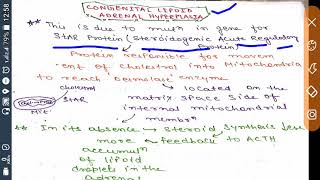 12:58
79%
CONGENITAL LIPOID
ADRENAL HYPERPLASIA
** This is due to mutn in gene for
StAR Protein (Steroidogenic Acute Regulatory
Protein)
Protein responsible for movem
ent of cholestrol into Mitochondria
to reach Desmolase enzyme
cholestrol
StAR
Mit.
located on the
matrix space side of
internal mitochondrial
membrn
** In its absence → Steroid synthesis less
more ← feedback to ACTH
accumuln
of lipoid
droplets in the
adrenal